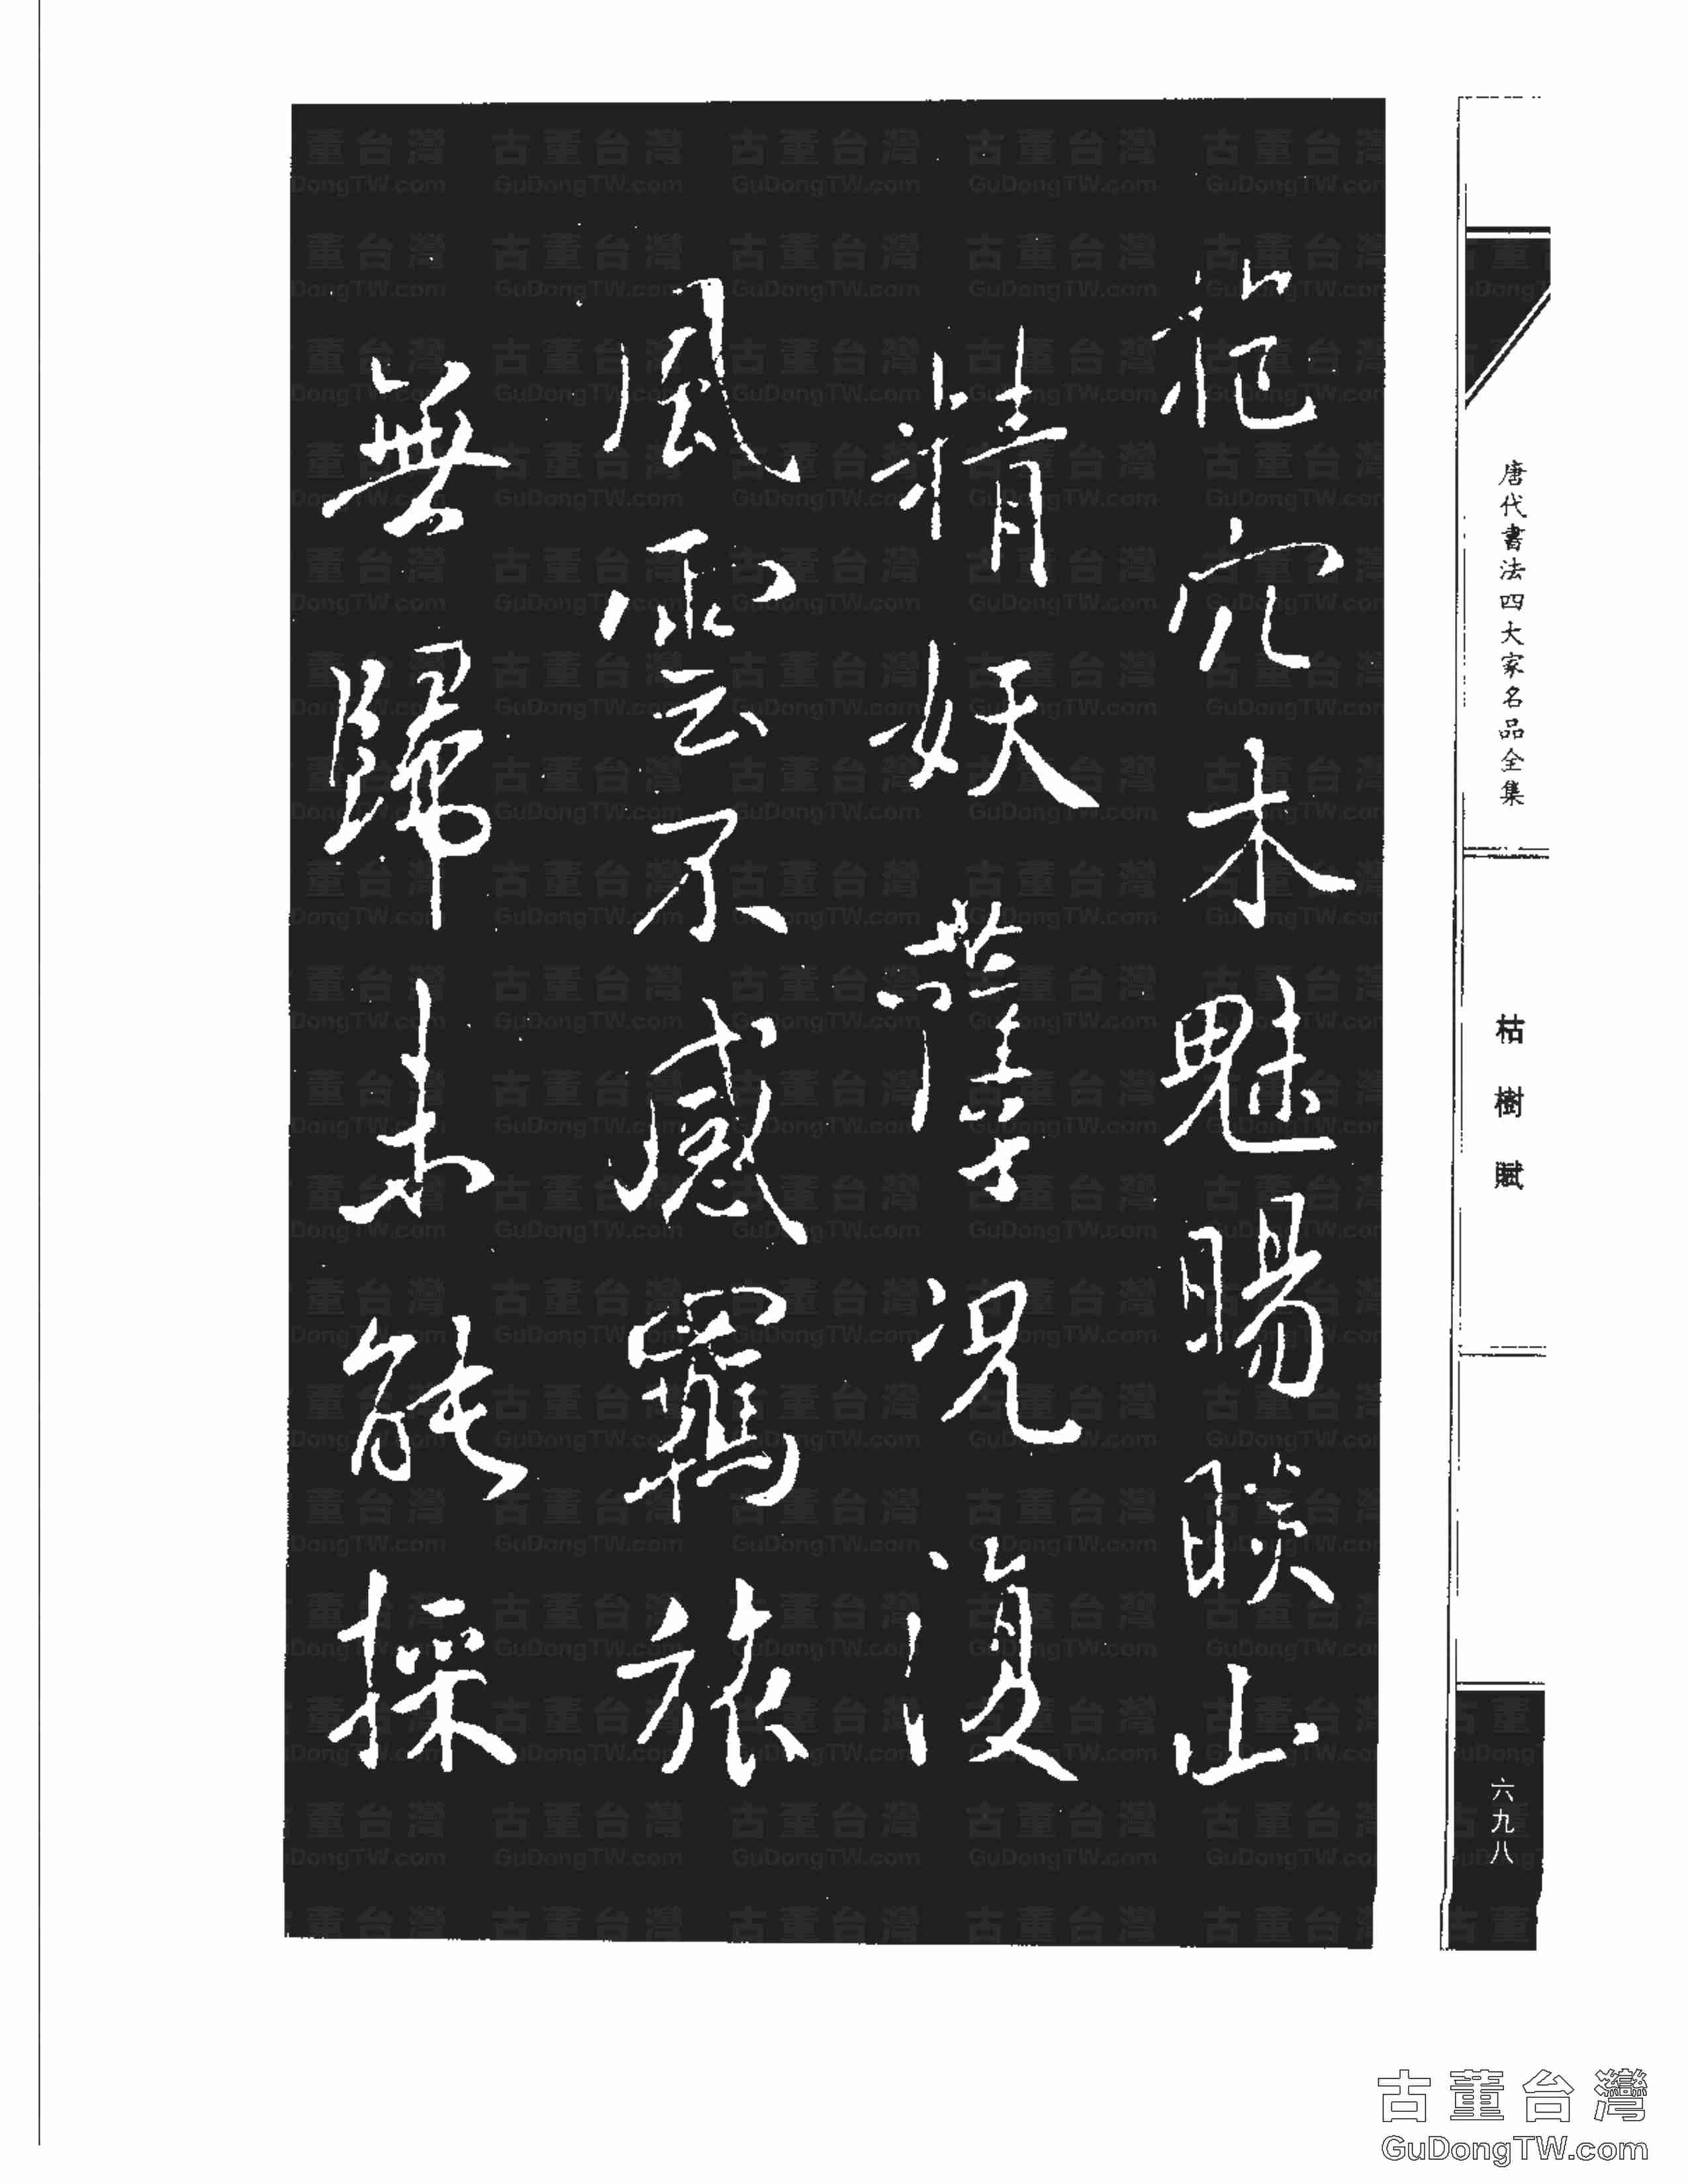 抱穴木魅睗睒山
精妖孽況復
風雲不感羈旅
無歸未能採
唐代書法四大家名品全集
枯樹賦
六九八
古董台灣
GuDongTW.com